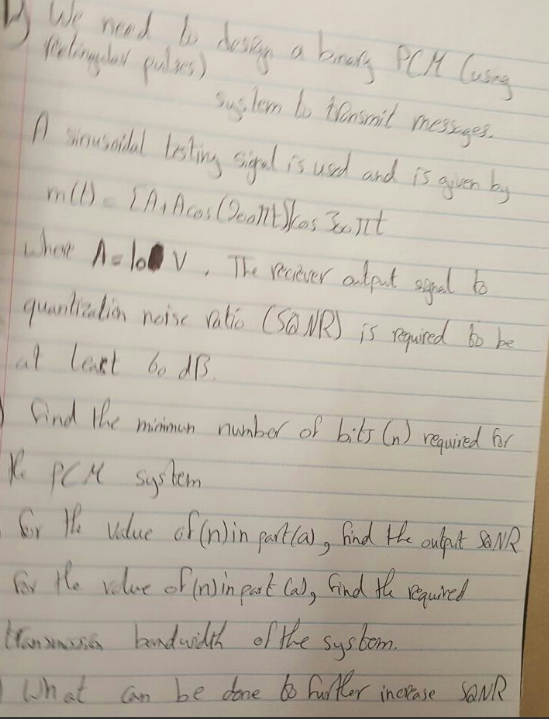 We need to design a binary PCM (using
Rectangular pulses)
system to transmit messages.
A sinusoidal testing signal is used and is given by
m(t) = [A+Acos(200πt)]cos 300πt
where A=10 V. The reciever output signal to
quantization noise ratio (SQNR) is required to be
at least 60 dB.
) find the minimun number of bits (n) required for
the PCM system
for the value of (n) in part (a), find the output SQNR
for the value of (n) in part (a), find the required
transmission bandwidth of the system.
) What can be done to further increase SQNR